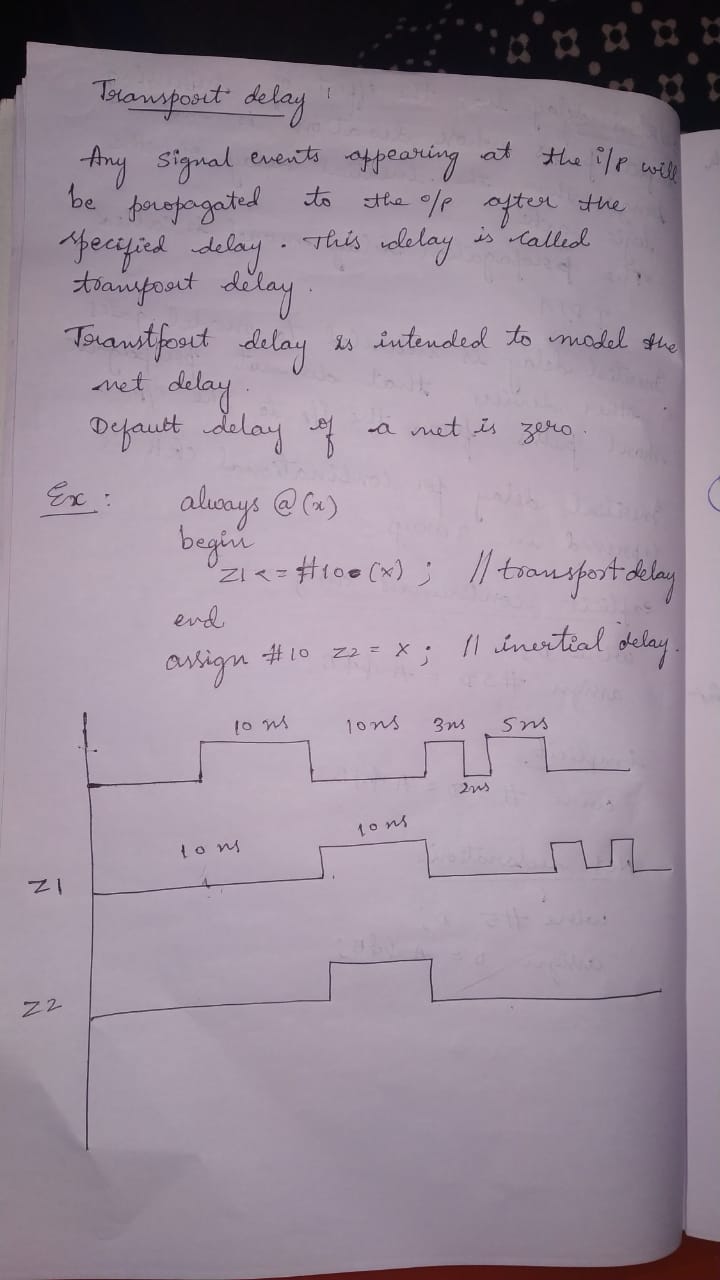 Transport delay :
Any signal events appearing at the i/p will
be propagated to the o/p after the
specified delay. This delay is called
transport delay.
Transtport delay is intended to model the
net delay.
Default delay of a net is zero.
Ex : always @ (x)
begin
Z1 <= #10 (x) ; // transport delay
end
assign #10 Z2 = x ; // inertial delay.
10 ns 10ns 3ns 5ns
2ns
10 ns 10 ns
Z1
Z2